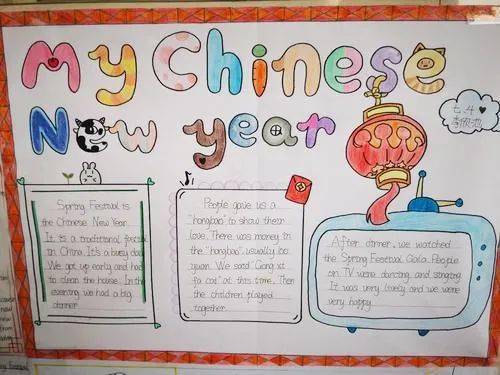 My Chinese
New year
Spring Festival is
the Chinese New Year.
It is a traditional festival
in China. It's a busy day.
We got up early and had
to clean the house. In the
evening we had a big
dinner.
People gave us a
"hongbao" to show their
love. There was money in
the "hongbao", usually 100
yuan. We said "Gong xi
fa cai" at this time. Then
the children played
together.
After dinner, we watched
the Spring Festival Gala. People
on TV were dancing and singing.
It was very lively and we were
very happy.
七.4